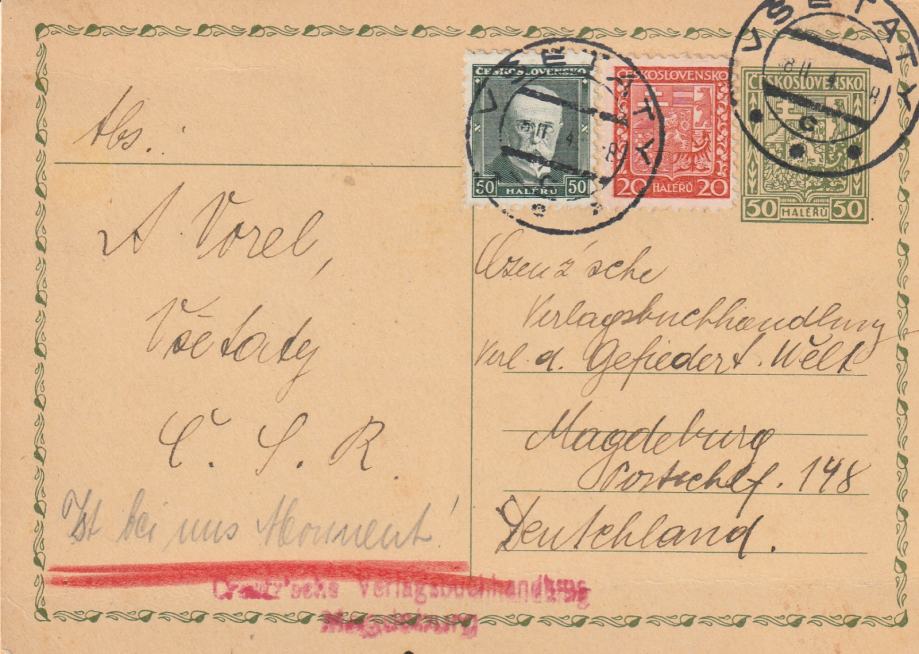 Abs.:
A Vorel,
Všetaty
Č. S. R.
Ist bei uns Abonnent!
VŠETATY
ČESKOSLOVENSKO
50 HALÉŘŮ 50
ČESKOSLOVENSKO
20 HALÉŘŮ 20
VŠETATY
ČESKOSLOVENSKO
50 HALÉŘŮ 50
'sche
Verlagsbuchhandlung
Verl. d. Gefiedert. Welt
Magdeburg
148
Deutschland.
Creutz'sche Verlagsbuchhandlung
Magdeburg